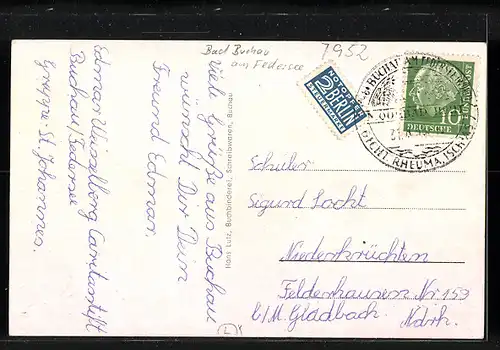 Bad Buchau
am Federsee
7952
Edmar
Buchau/Federsee
Gruppe St. Johannes.
Viele Grüße aus Buchau
wünscht Dir Dein
Freund Edmar.
Hans Lutz, Buchbinderei, Schreibwaren, Buchau
NOTOPFER
2 BERLIN
STEUERMARKE
BUCHAU AM FEDERSEE
GICHT, RHEUMA, ISCHIAS
10
DEUTSCHE
Schüler
Sigurd Locht
Niederkrüchten
Felderhausen Nr 159
b/M. Gladbach. Ndrh.
L